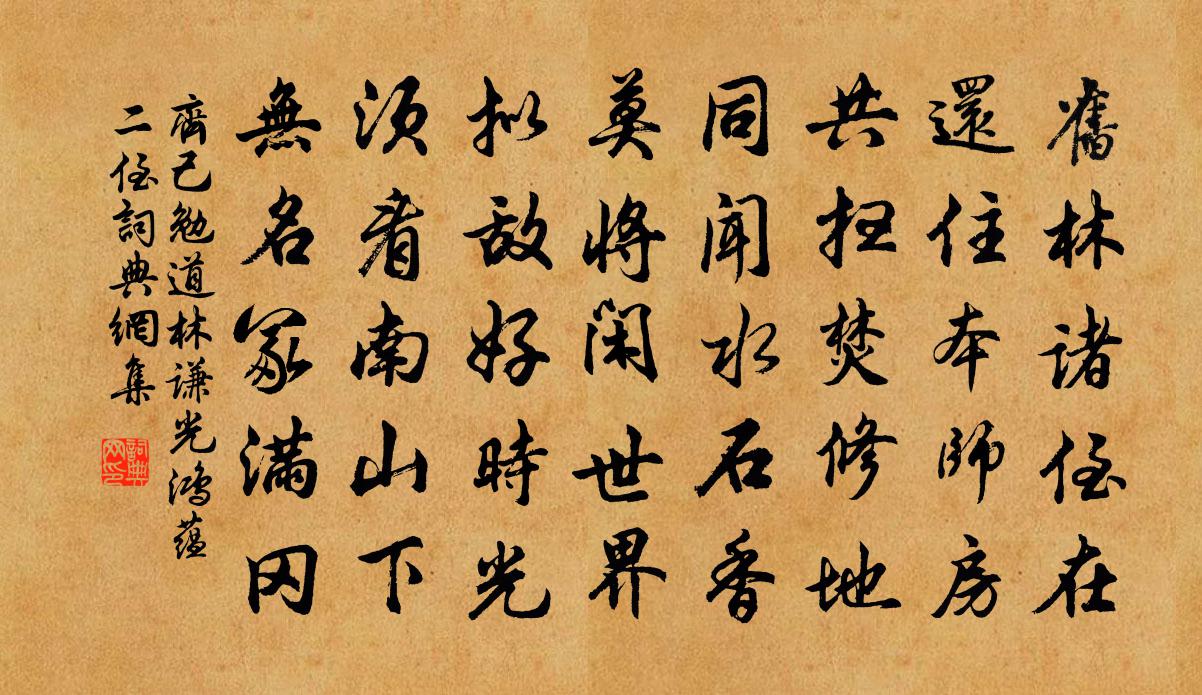 舊林諸侄在
還住本師房
共扫焚修地
同聞水石香
莫將閑世界
拟敌好時光
须看南山下
無名冢滿冈
齊己勉道林謙光鴻蘊
二侄詞典網集
詞典
网印